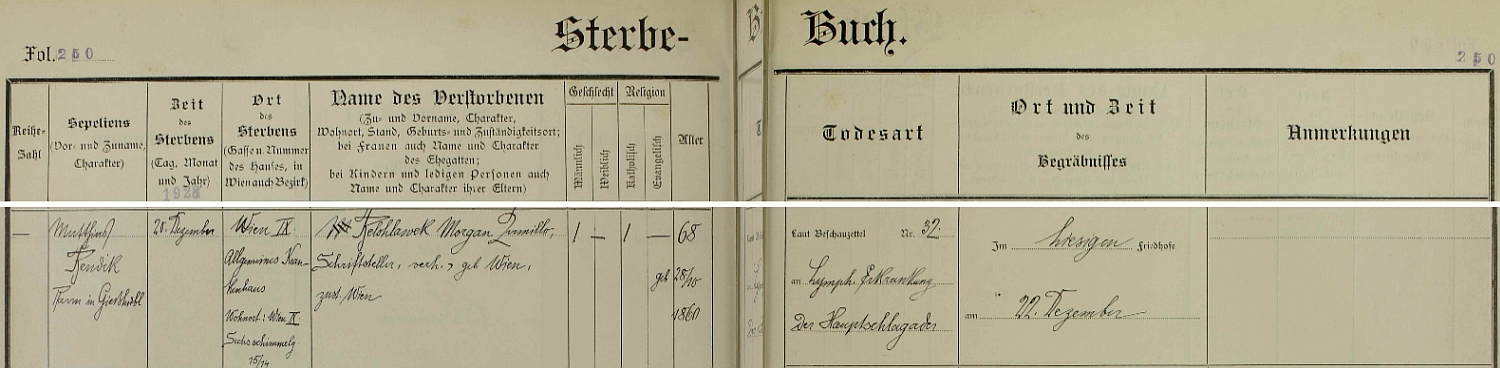 Sterbe-
Buch.
Fol. 250
250
Reihe-
Zahl
Sepeliens
(Vor- und Zuname,
Charakter)
Zeit
des
Sterbens
(Tag, Monat
und Jahr)
1928
Ort
des
Sterbens
(Gasse u. Nummer
des Hauses, in
Wien auch Bezirk)
Name des Verstorbenen
(Zu- und Vorname, Charakter,
Wohnort, Stand, Geburts- und Zuständigkeitsort;
bei Frauen auch Name und Charakter
des Ehegatten;
bei Kindern und ledigen Personen auch
Name und Charakter ihrer Eltern)
Geschlecht
Männlich
Weiblich
Religion
Katholisch
Evangelisch
Alter
Todesart
Ort und Zeit
des
Begräbnisses
Anmerkungen
—
Matthias
Rendik
Pfarrer in Giesshübl
20. Dezember
Wien IX.
Allgemeines Kran-
kenhaus
Wohnort: Wien IX
Sechsschimmelg
15/14
Morgan Camillo,
Schriftsteller, verh., geb Wien,
zust. Wien
1 — 1 —
68
geb 28/10
1860
Laut Beschauzettel Nr. 32.
an Lymph. Erkrankung
der Hauptschlagader
Im hiesigen Friedhofe
am 22. Dezember